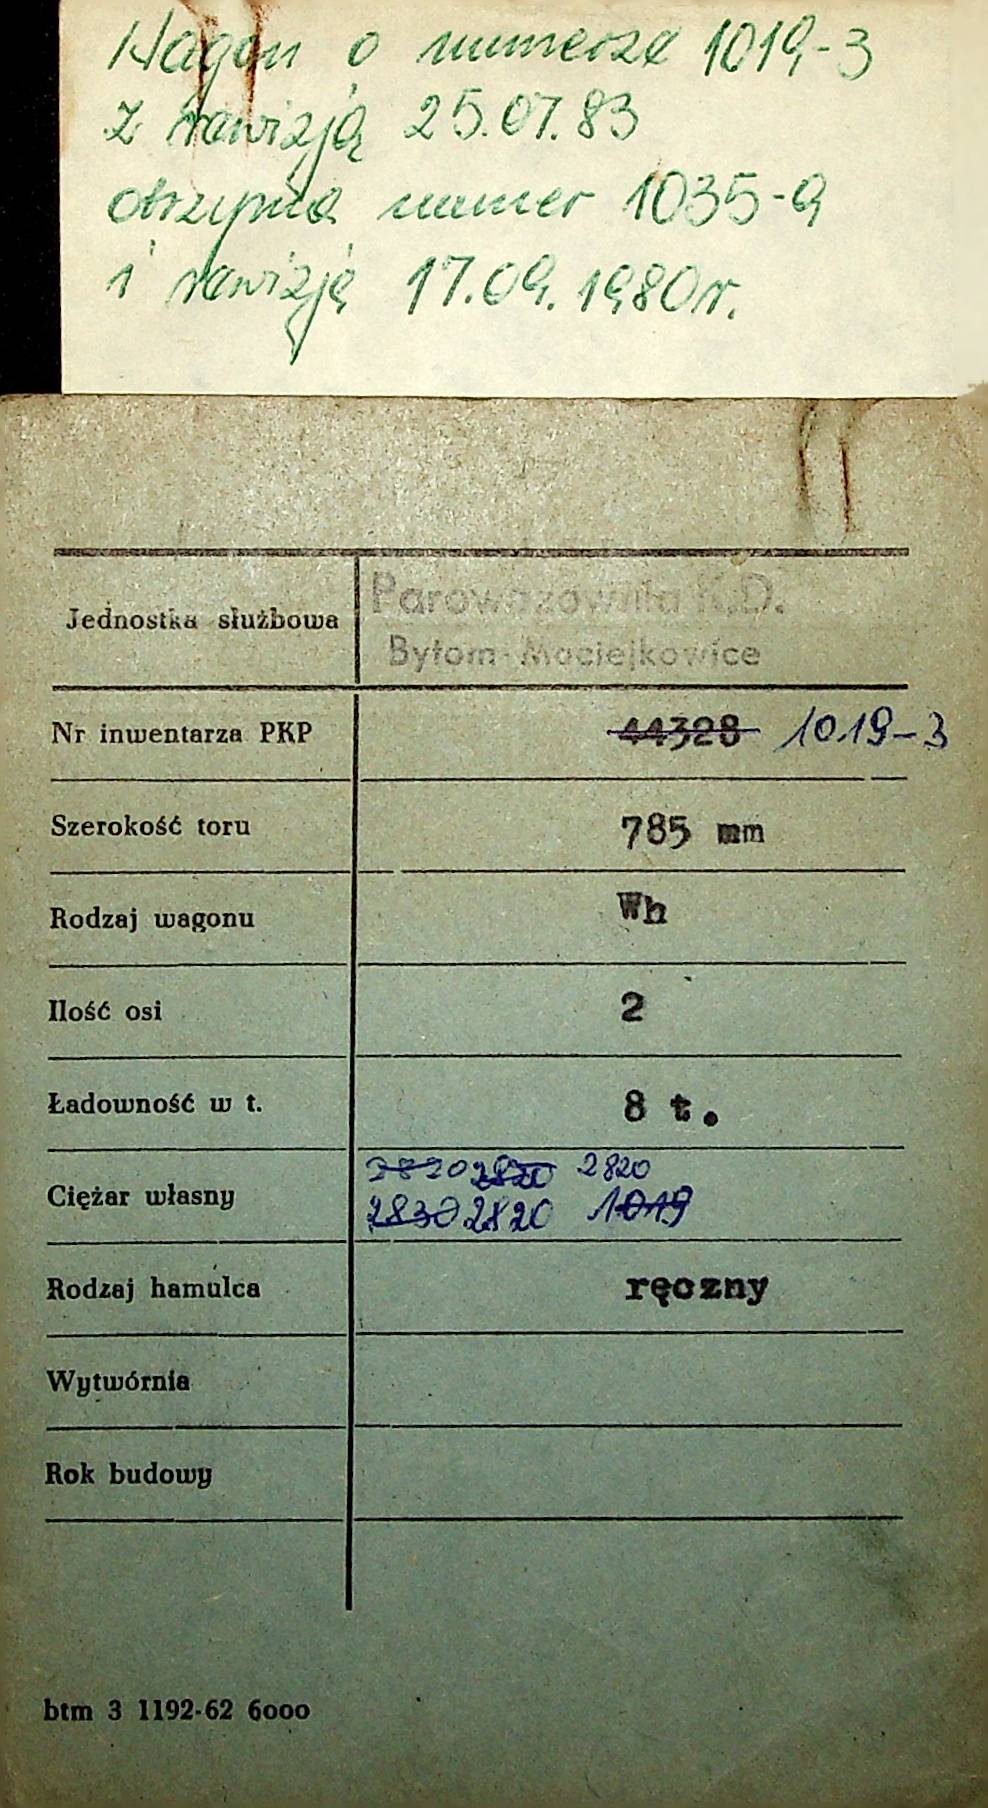 Wagon o numerze 1019-3
z rewizją 25.07.83
otrzyma numer 1035-9
i rewizję 17.09.1980r.
Jednostka służbowa Parowozownia K.D.
Bytom-Maciejkowice
Nr inwentarza PKP 44328 1019-3
Szerokość toru 785 mm
Rodzaj wagonu Wh
Ilość osi 2
Ładowność w t. 8 t.
2820 2820 2820
Ciężar własny 2830 2820 1019
Rodzaj hamulca ręczny
Wytwórnia
Rok budowy
btm 3 1192-62 6ooo